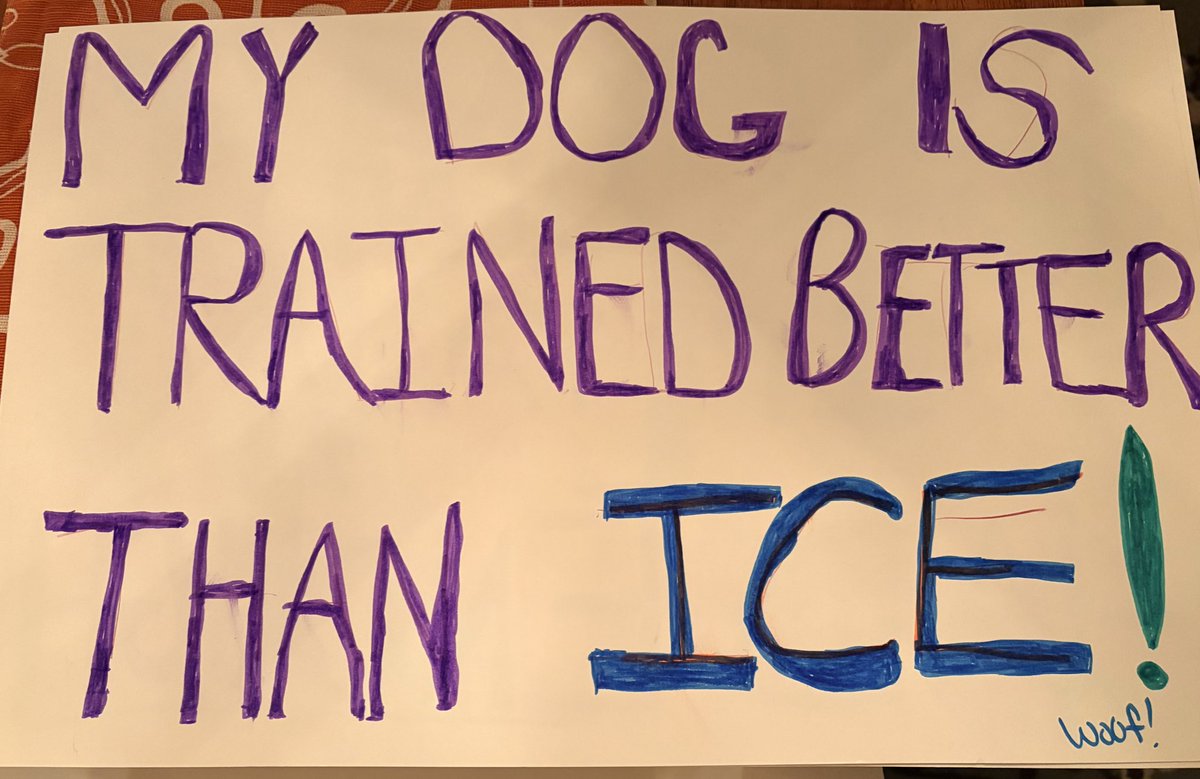 MY DOG IS
TRAINED BETTER
THAN ICE!
woof!